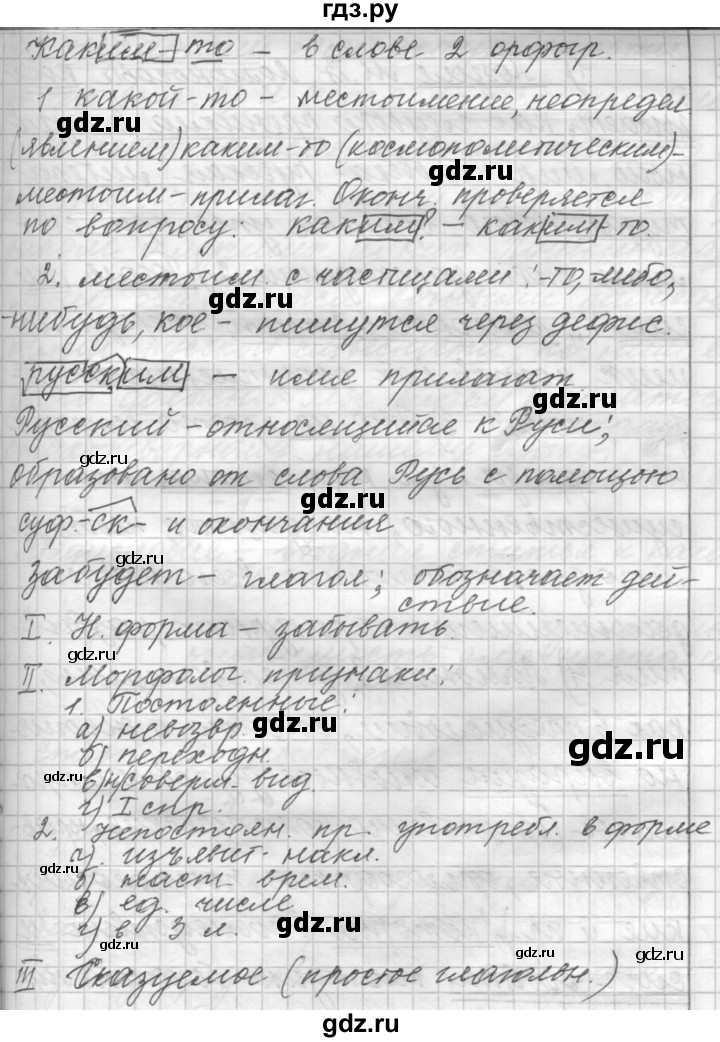 гдз.ру
каким-то – в слове 2 орфогр.
1 какой-то – местоимение, неопредел.
gdz.ru
(явлением) каким-то (космополитическим) –
gdz.ru
местоим – прилаг. Оконч. проверяется
по вопросу: каким? – каким-то.
2. местоим. с частицами: -то, -либо,
gdz.ru
gdz.ru
-нибудь, кое- пишутся через дефис.
русским – имя прилагат.
gdz.ru
Русский – относящийся к Руси;
образовано от слова Русь с помощью
gdz.ru
суф. -ск- и окончания
gdz.ru
Забудет – глагол; обозначает дей-
ствие.
I. Н. форма – забывать.
gdz.ru
II. Морфолог. признаки:
1. Постоянные:
а) невозвр.
gdz.ru
б) переходн.
gdz.ru
gdz.ru
в) н/соверш. вид.
г) I спр.
2. Непостоян. пр. употребл. в форме
а). изъявит. накл.
gdz.ru
б) наст. врем.
в) ед. числе
gdz.ru
г) в 3 л.
gdz.ru
gdz.ru
III Сказуемое (простое глагольн.)
gdz.ru
gdz.ru